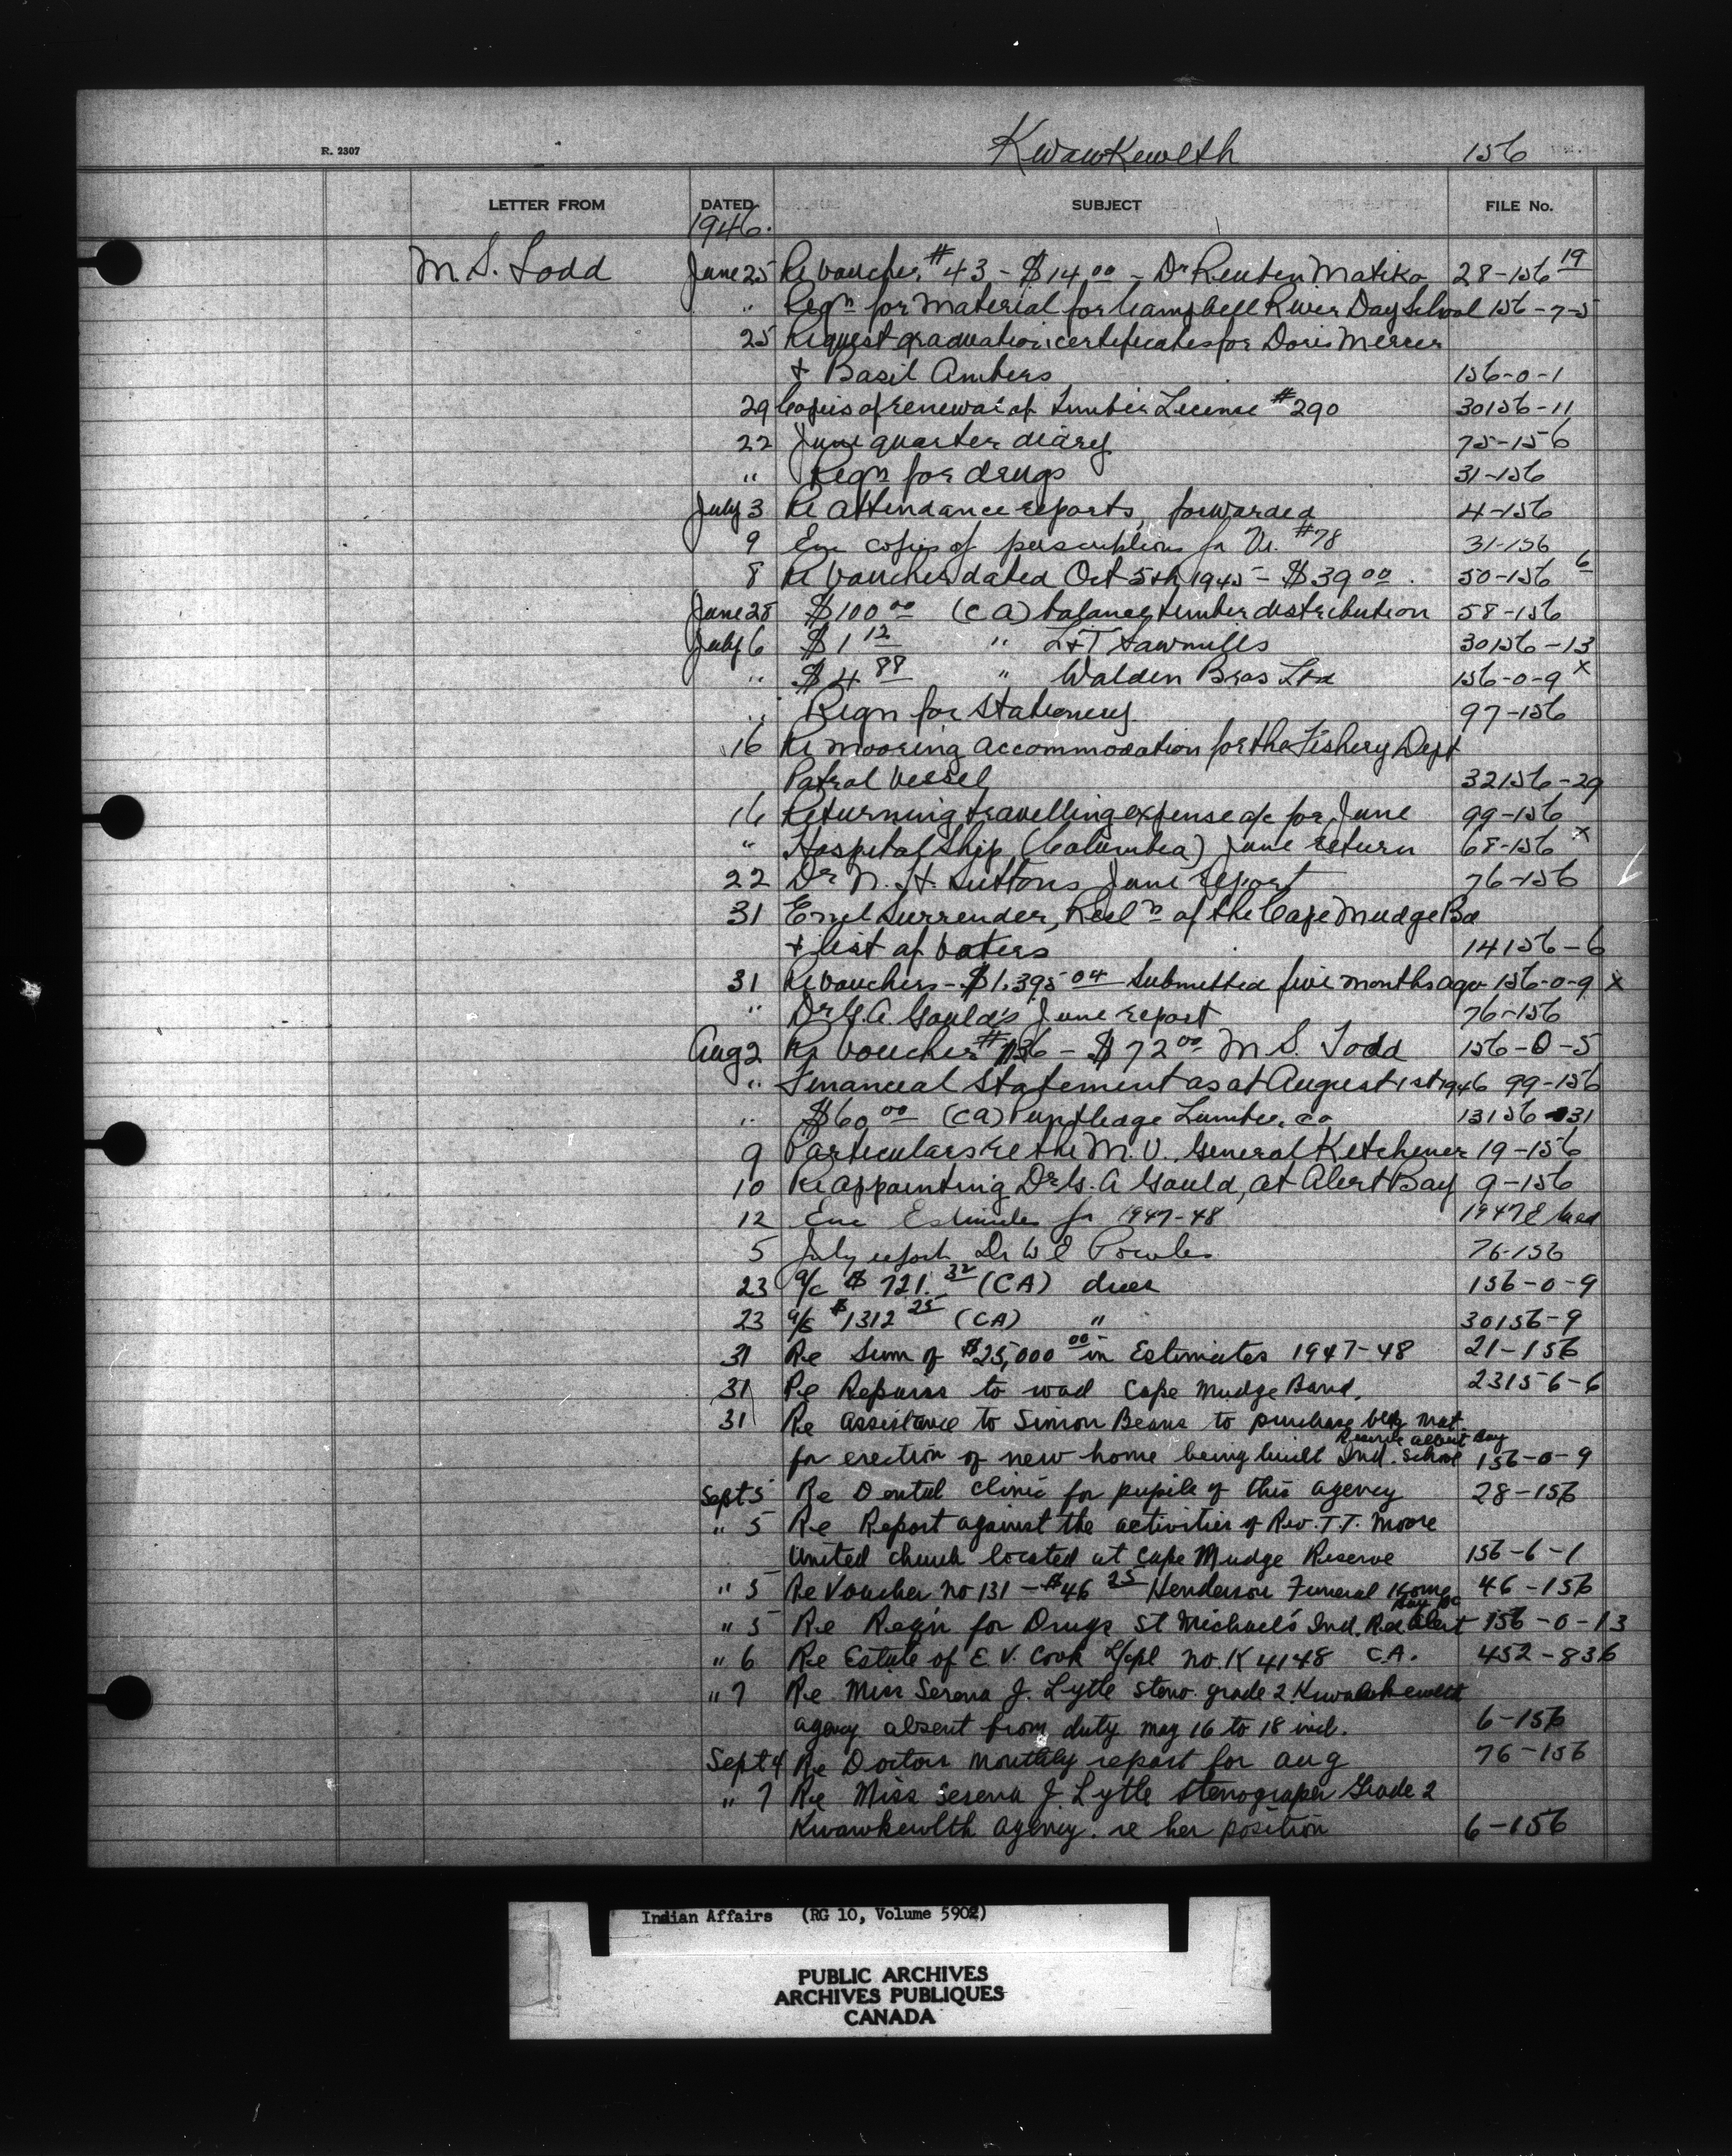 R. 2307
Kwawkewlth 156
LETTER FROM DATED SUBJECT FILE No.
1946.
M. S. Todd June 25 Re Voucher #43 - $14 00 - Dr Reuben Matiko 28-156 19
" Reqn for Material for Campbell River Day School 156-7-5
25 Request graduation certificates for Doris Mercer
+ Basil Ambers 156-0-1
29 Copies of renewal of Timber License #290 30156-11
22 June quarter diary 75-156
" Reqn for drugs 31-156
July 3 Re Attendance reports, forwarded 4-156
9 Enc copies of perscriptions for Vr. #78 31-156
8 Re Voucher dated Oct 5th, 1945 - $39 00. 50-156 6
June 28 $100 00 (CA) balance, timber distribution 58-156
July 6 $1 12 " L+T Sawmills 30156-13
" $4 88 " Walden Bros Ltd 156-0-9 x
" Reqn for Stationery 97-156
16 Re mooring accommodation for the Fishery Dept
Patrol Vessel 32156-29
16 Returning travelling expense a/c for June 99-156
" Hospital Ship (Columbia) June return 68-156 x
22 Dr N. H. Suttons June report 76-156
31 Surrender, Resln of the Cape Mudge Bd
+ list of Voters 14156-6
31 Re Vouchers - $1,395 04 Submitted five months ago 156-0-9 x
" Dr G. A. Gould's June report 76-156
Aug 2 Re Voucher #136 - $72 00 M S. Todd 156-0-5
" Financial Statement as at August 1st 1946 99-156
" $60 00 (CA) Puntledge Lumber Co 13156-31
9 Particulars re the M. V. General Kitchener 19-156
10 Re appointing Dr G. A Gould, at Alert Bay 9-156
12 Enc Estimates for 1947-48 1947
5 July report Dr W E Powles 76-156
23 a/c $721. 32 (CA) dues 156-0-9
23 a/c $1312 25 (CA) " 30156-9
31 Re Sum of $25,000 00 in Estimates 1947-48 21-156
31 Re Repairs to road Cape Mudge Band. 23156-6
31 Re assistance to Simon Beans to purchase bldg mat
Reserve Alert Bay
for erection of new home being built Ind. School 156-0-9
Sept 5 Re Dental Clinic for pupils of this agency 28-156
" 5 Re Report against the activities of Rev. T.T. Moore
United church located at Cape Mudge Reserve 156-6-1
" 5 Re Voucher no 131 - $46 25 Henderson Funeral Home 46-156
Bay BC
" 5 Re Reqn for Drugs St Michael's Ind. Res Alert 156-0-13
" 6 Re Estate of E. V. Cook no. K 4148 C.A. 452-836
" 7 Re Miss Serena J. Lytle steno. grade 2 Kwawkewlth
agency absent from duty May 16 to 18 incl. 6-156
Sept 4 Re Doctors Monthly report for Aug 76-156
" 7 Re Miss Serena J Lytle Stenograper Grade 2
Kwawkewlth Agency. re her position 6-156
Indian Affairs (RG 10, Volume 5902)
PUBLIC ARCHIVES
ARCHIVES PUBLIQUES
CANADA